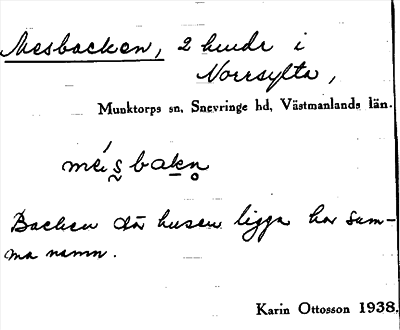 Mesbacken, 2 hundr i
Norrsylta,
Munktorps sn, Snevringe hd, Västmanlands län.
mé́s̰bakn̥
Backen där husen ligga har sam-
ma namn.
Karin Ottosson 1938.